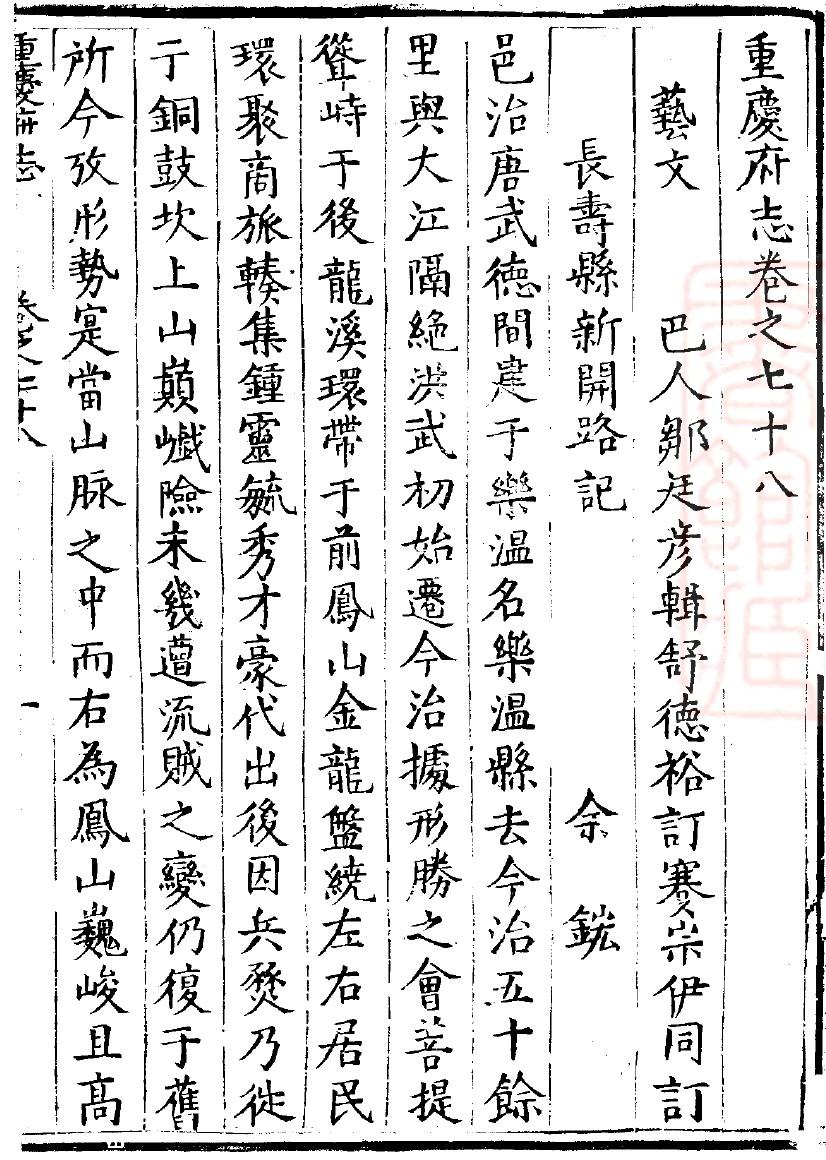 重慶府志卷之七十八
藝文　巴人鄒廷彦輯舒德裕訂蹇崇伊同訂
長壽縣新開路記　余鋐
邑治唐武德間建于樂温名樂温縣去今治五十餘
里與大江隔絶洪武初始遷今治據形勝之會菩提
聳峙于後龍溪環帶于前鳳山金龍盤繞左右居民
環聚商旅輳集鍾靈毓秀才豪代出後因兵燹乃徙
于銅鼓坎上山巔巇險未幾遭流賊之變仍復于舊
所今攷形勢寔當山脉之中而右為鳳山巍峻且高
重慶府志　卷之七十八　一